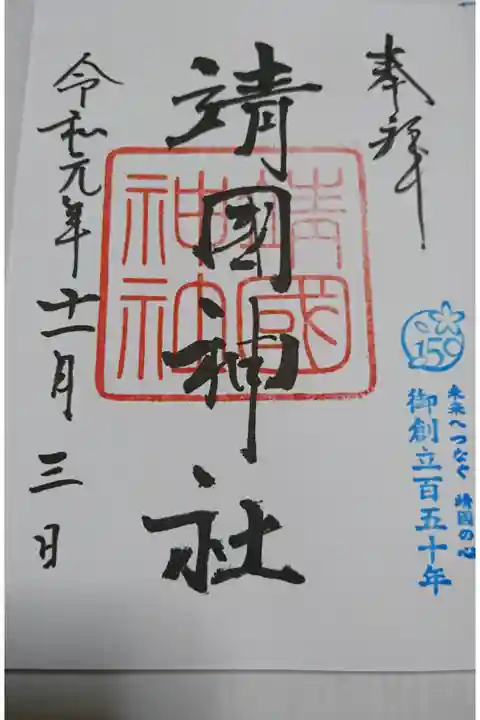 奉拝
150
未来へつなぐ 靖国の心
御創立百五十年
靖國神社
靖國
神社
令和元年十一月三日